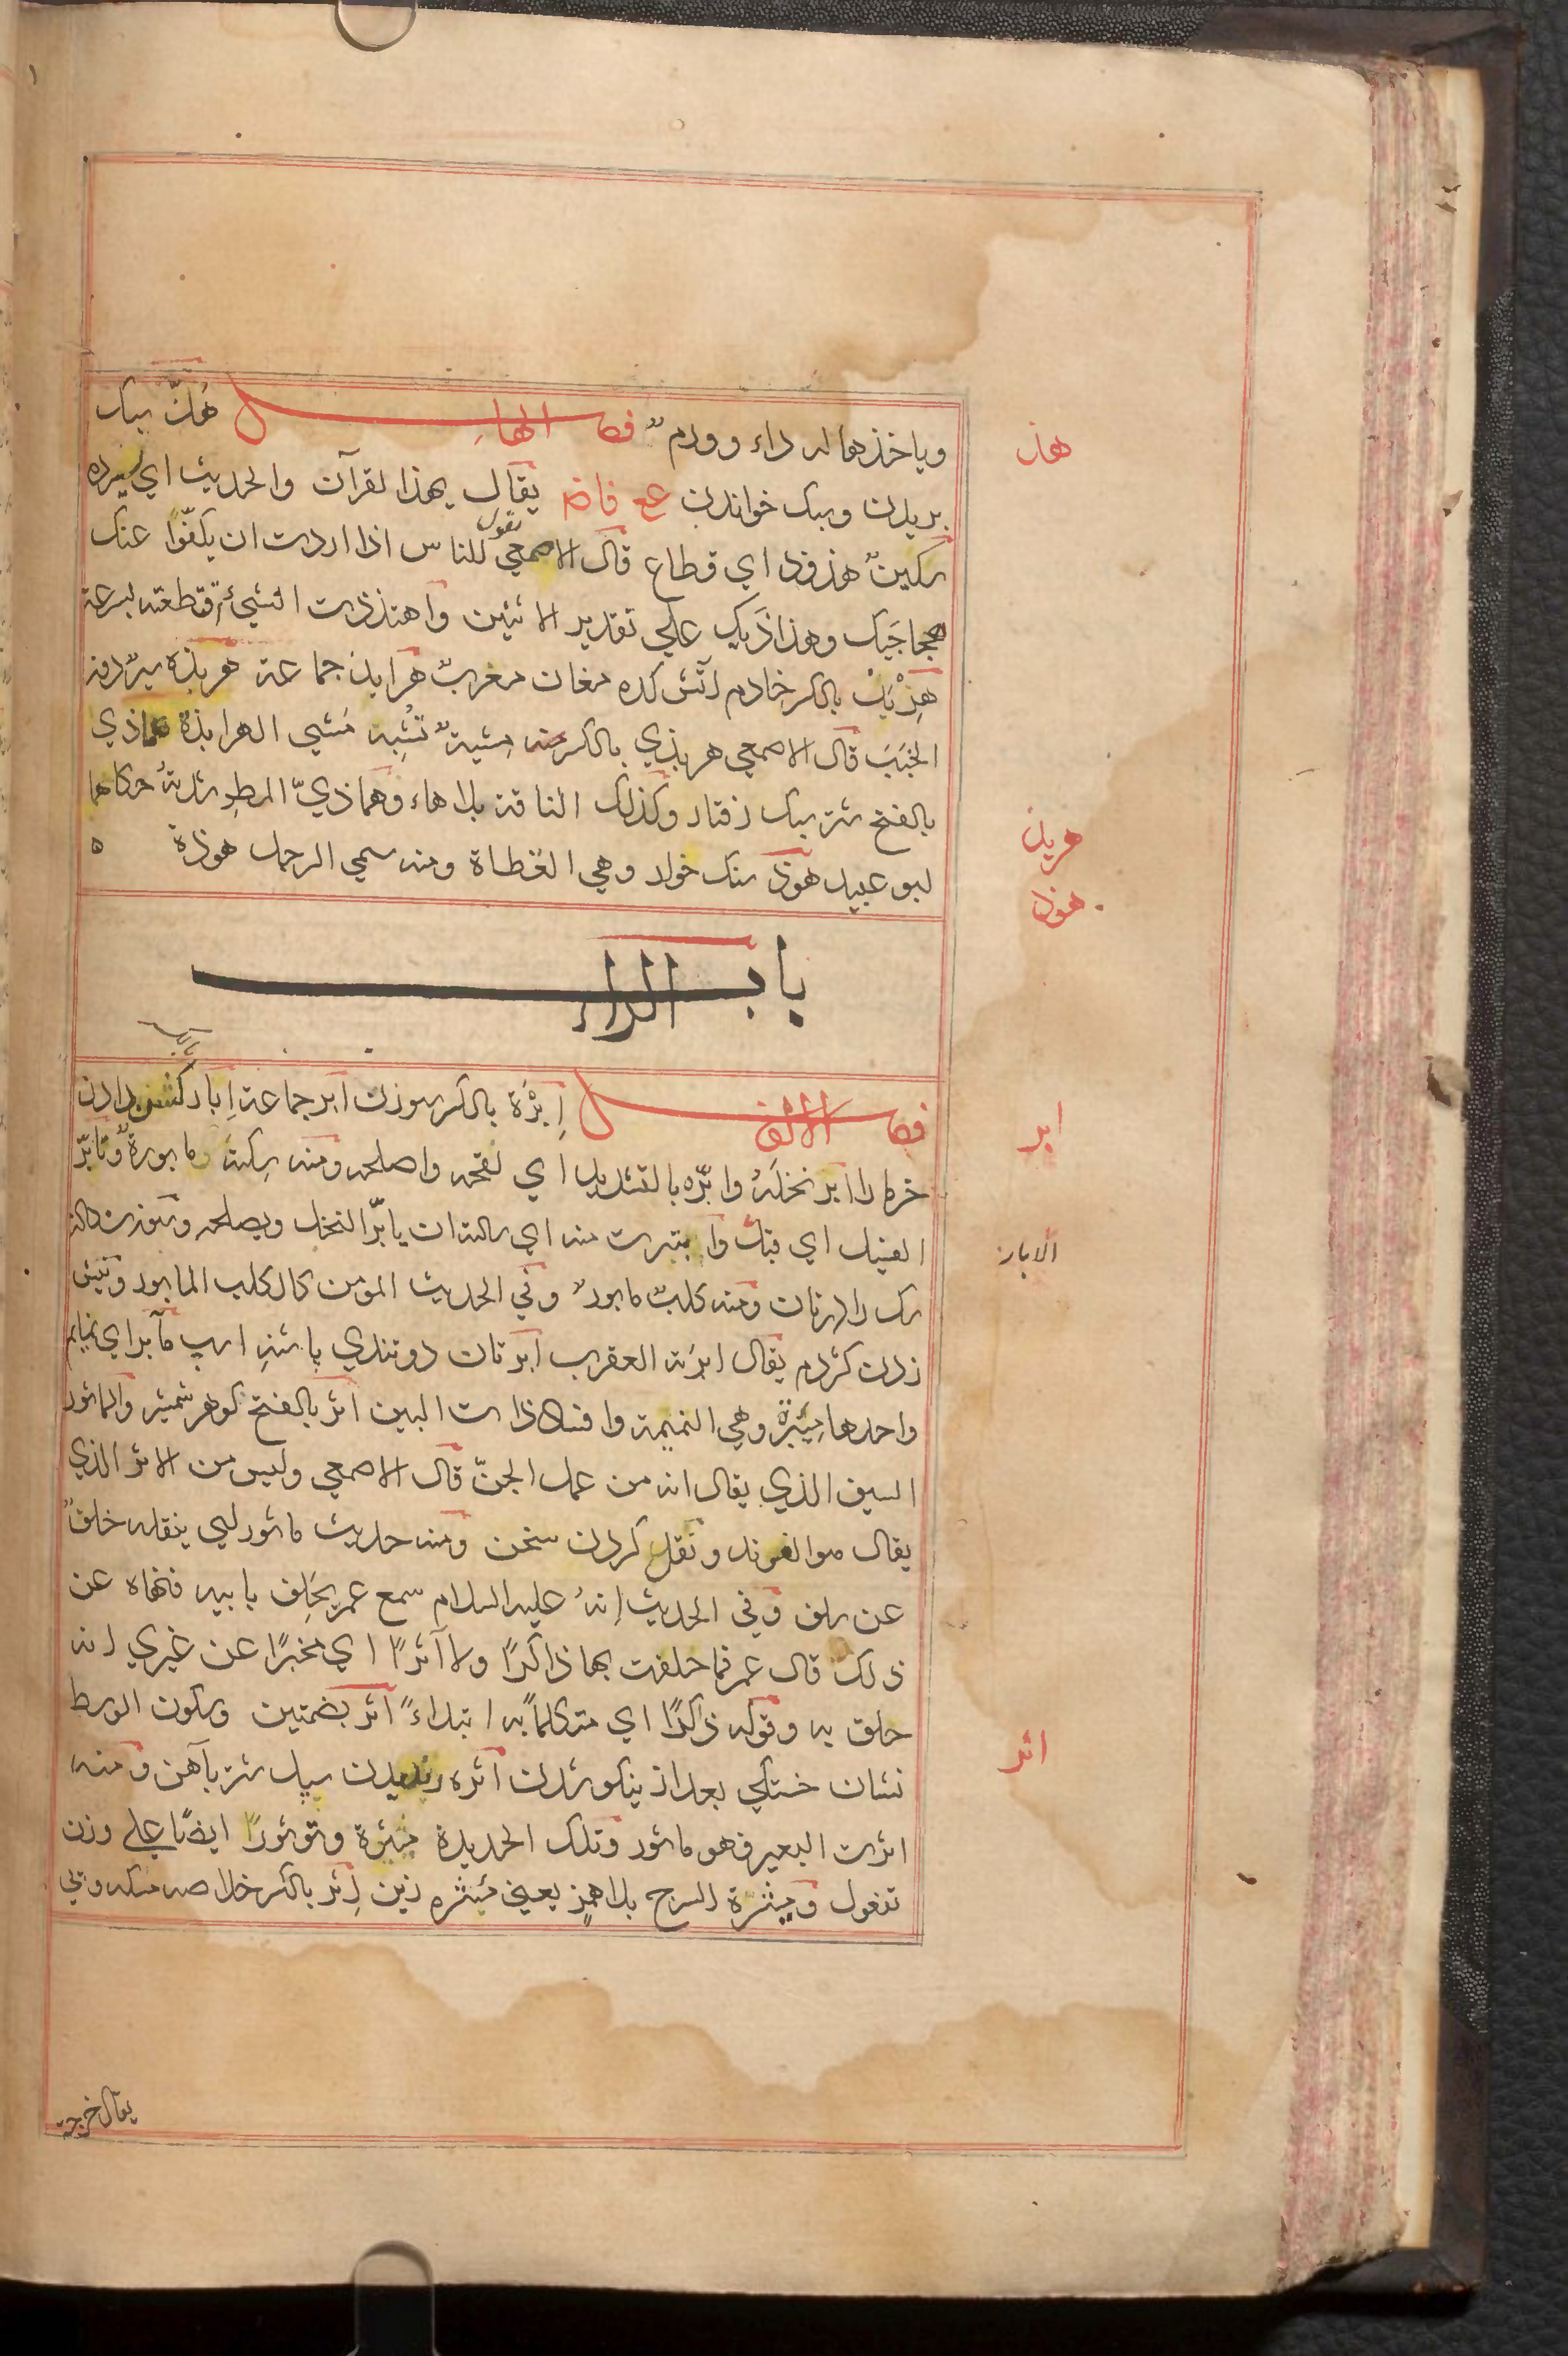 وياخذها له داء وورم فصل الهاء هذّ سبك
بريدن وسبك خواندن عع فاضه يقال يهذ القرآن والحديث اي يسرده
سكين هذوذ اي قطاع قال الاصمعي تقول للناس اذا اردت ان يكفّوا عنك
هجاجيك وهذاذيك علي تقدير الاثنين واهتذذت الشئ اقتطعته بسرعة
هِرْبِذ بالكسر خادم آتش كده مغان معرب هرابذ جماعة هربذه سير دون
الخبب قال الاصمعي هربذي بالكسر منه مشية تشبه مشي الهرابذة هماذي
بالفتح شتر سبك رفتار وكذلك الناقة بلا هاء وهماذيّ المطر شدته حكاهما
ابو عبيد هوذ سنك خوار وهي القطاة ومنه سمي الرجل هوذة ه
باب الراء
فصل الالف اِبرْة بالكسر سوزن ابر جماعة اِبار كشن دادن
خرما را ابر نخله وابّره بالتشديد اي لقحه واصلحه ومنه سكة مابورة وتابّر
الفسيل اي قبل وابتبرت منه اي سالته ان يابر النخل ويصلحه وسوزن دادن
سك را در نان ومنه كلب مابور وفي الحديث المومن كالكلب المابور ونيش
زدن كژدم يقال ابرته العقرب ابرتان دو تندي پاشنه اسب مآبر اي نمايم
واحدها مئبرة وهي النميمة وافساد ذات البين اثر بالفتح كوهر شمشير والماثور
السيف الذي يقال انه من عمل الجنّ قال الاصمعي وليس من الاثر الذي
يقال هو الفرند ونقل كردن سخن ومنه حديث ماثور اي ينقله خلف
عن سلف وفي الحديث انه عليه السلام سمع عمر يحلف بابيه فنهاه عن
ذلك قال عمر فما حلفت بها ذاكرًا ولا آثرًا اي مخبرًا عن غيري انه
حلف به وقوله ذاكرًا اي متكلمًا به ابتداءً اثر بضمتين وسكون الوسط
نشان خستكي بعد از نيكو شدن اثره رنديدن سپل شتر بآهن ومنه
اثرت البعير فهو ماثور وتلك الحديدة مئثرة وتوثورًا ايضًا علي وزن
تفعول وميثرة السرج بلا همز يعني ميثره زين اِثر بالكسر خلاصه مسكه وپي
هذ
هربذ
هوذ
ابر
الابار
اثر
يقال خرجت